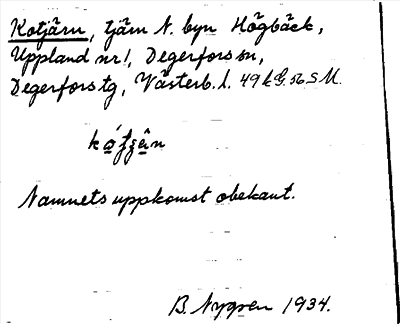 Kotjärn, tjärn N. byn Högbäck,
Uppland nr 1, Degerfors sn,
Degerfors tg, Västerb. l. 49 k G. 56 S M.
Namnets uppkomst obekant.
B. Nygren 1934.